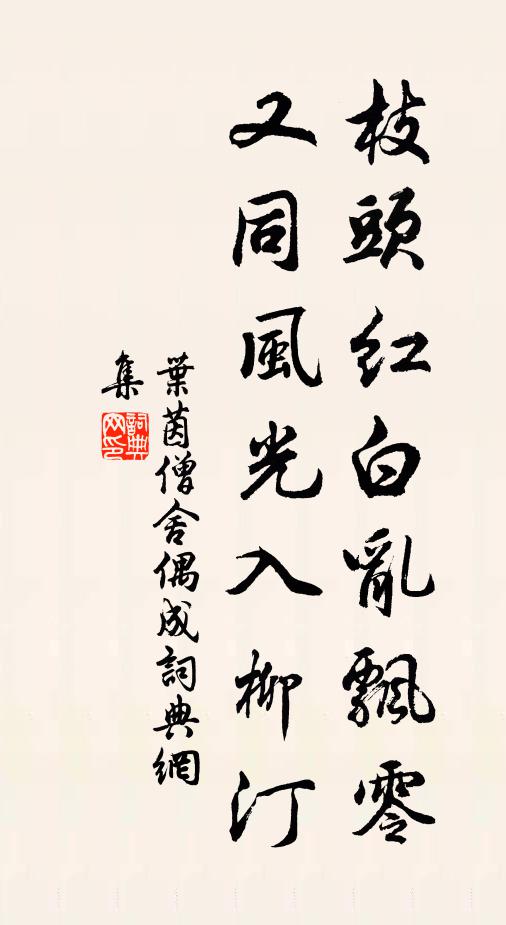 枝頭紅白亂飄零
又同風光入柳汀
葉茵僧舍偶成詞典網
集
詞典
网印